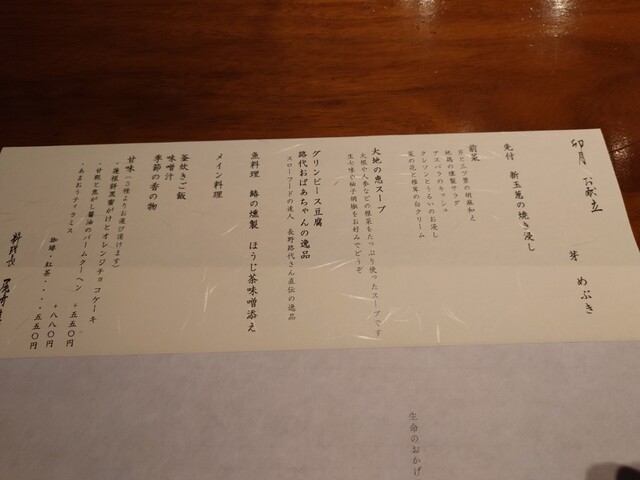 卯月 お献立
芽 めぶき
先付 新玉葱の焼き浸し
前菜
芹と三つ葉の胡麻和え
地鶏の燻製サラダ
アスパラのキッシュ
クレソンとうるいのお浸し
菜の花と椎茸の白クリーム
大地の色スープ
大根や人参などの根菜をたっぷり使ったスープです
生七味や柚子胡椒をお好みでどうぞ
グリンピース豆腐
路代おばあちゃんの逸品
スローフードの達人 長野路代さん直伝の逸品
魚料理 鰆の燻製 ほうじ茶味噌添え
メイン料理
釜炊きご飯
味噌汁
季節の香の物
甘味(3種よりお選び頂けます)
・蓮根餅黒蜜がけとオレンジチョコケーキ
・甘糀と焦がし醤油のバームクーヘン +五五〇円
・あまおうティラミス +八八〇円
珈琲・紅茶・・・・五五〇円
料理長
生命のおかげ